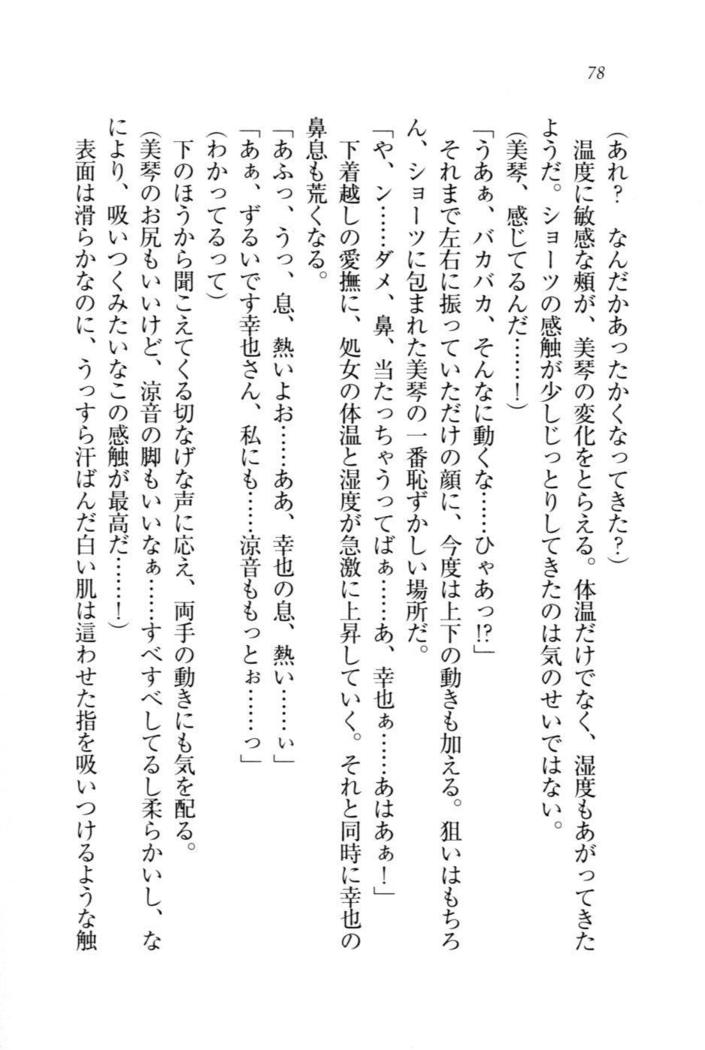 78
（あれ？　なんだかあったかくなってきた？）
　温度に敏感な頰が、美琴の変化をとらえる。体温だけでなく、湿度もあがってきた
ようだ。ショーツの感触が少しじっとりしてきたのは気のせいではない。
（美琴、感じてるんだ……！）
「うあぁ、バカバカ、そんなに動くな……ひゃあっ!?」
　それまで左右に振っていただけの顔に、今度は上下の動きも加える。狙いはもちろ
ん、ショーツに包まれた美琴の一番恥ずかしい場所だ。
「や、ン……ダメ、鼻、当たっちゃうってばぁ……あ、幸也ぁ……あはあぁ！」
　下着越しの愛撫に、処女の体温と湿度が急激に上昇していく。それと同時に幸也の
鼻息も荒くなる。
「あふっ、うっ、息、熱いよお……ああ、幸也の息、熱い……ぃ」
「あぁ、ずるいです幸也さん、私にも……涼音ももっとぉ……っ」
（わかってるって）
　下のほうから聞こえてくる切なげな声に応え、両手の動きにも気を配る。
（美琴のお尻もいいけど、涼音の脚もいいなぁ……すべすべしてるし柔らかいし、な
により、吸いつくみたいなこの感触が最高だ……！）
　表面は滑らかなのに、うっすら汗ばんだ白い肌は這わせた指を吸いつけるような触